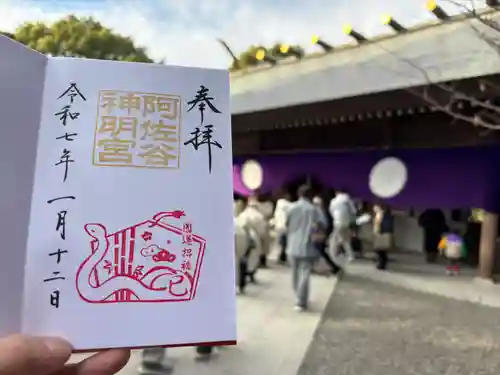 奉拝
阿佐谷
神明宮
開運招福
令和七年一月十二日